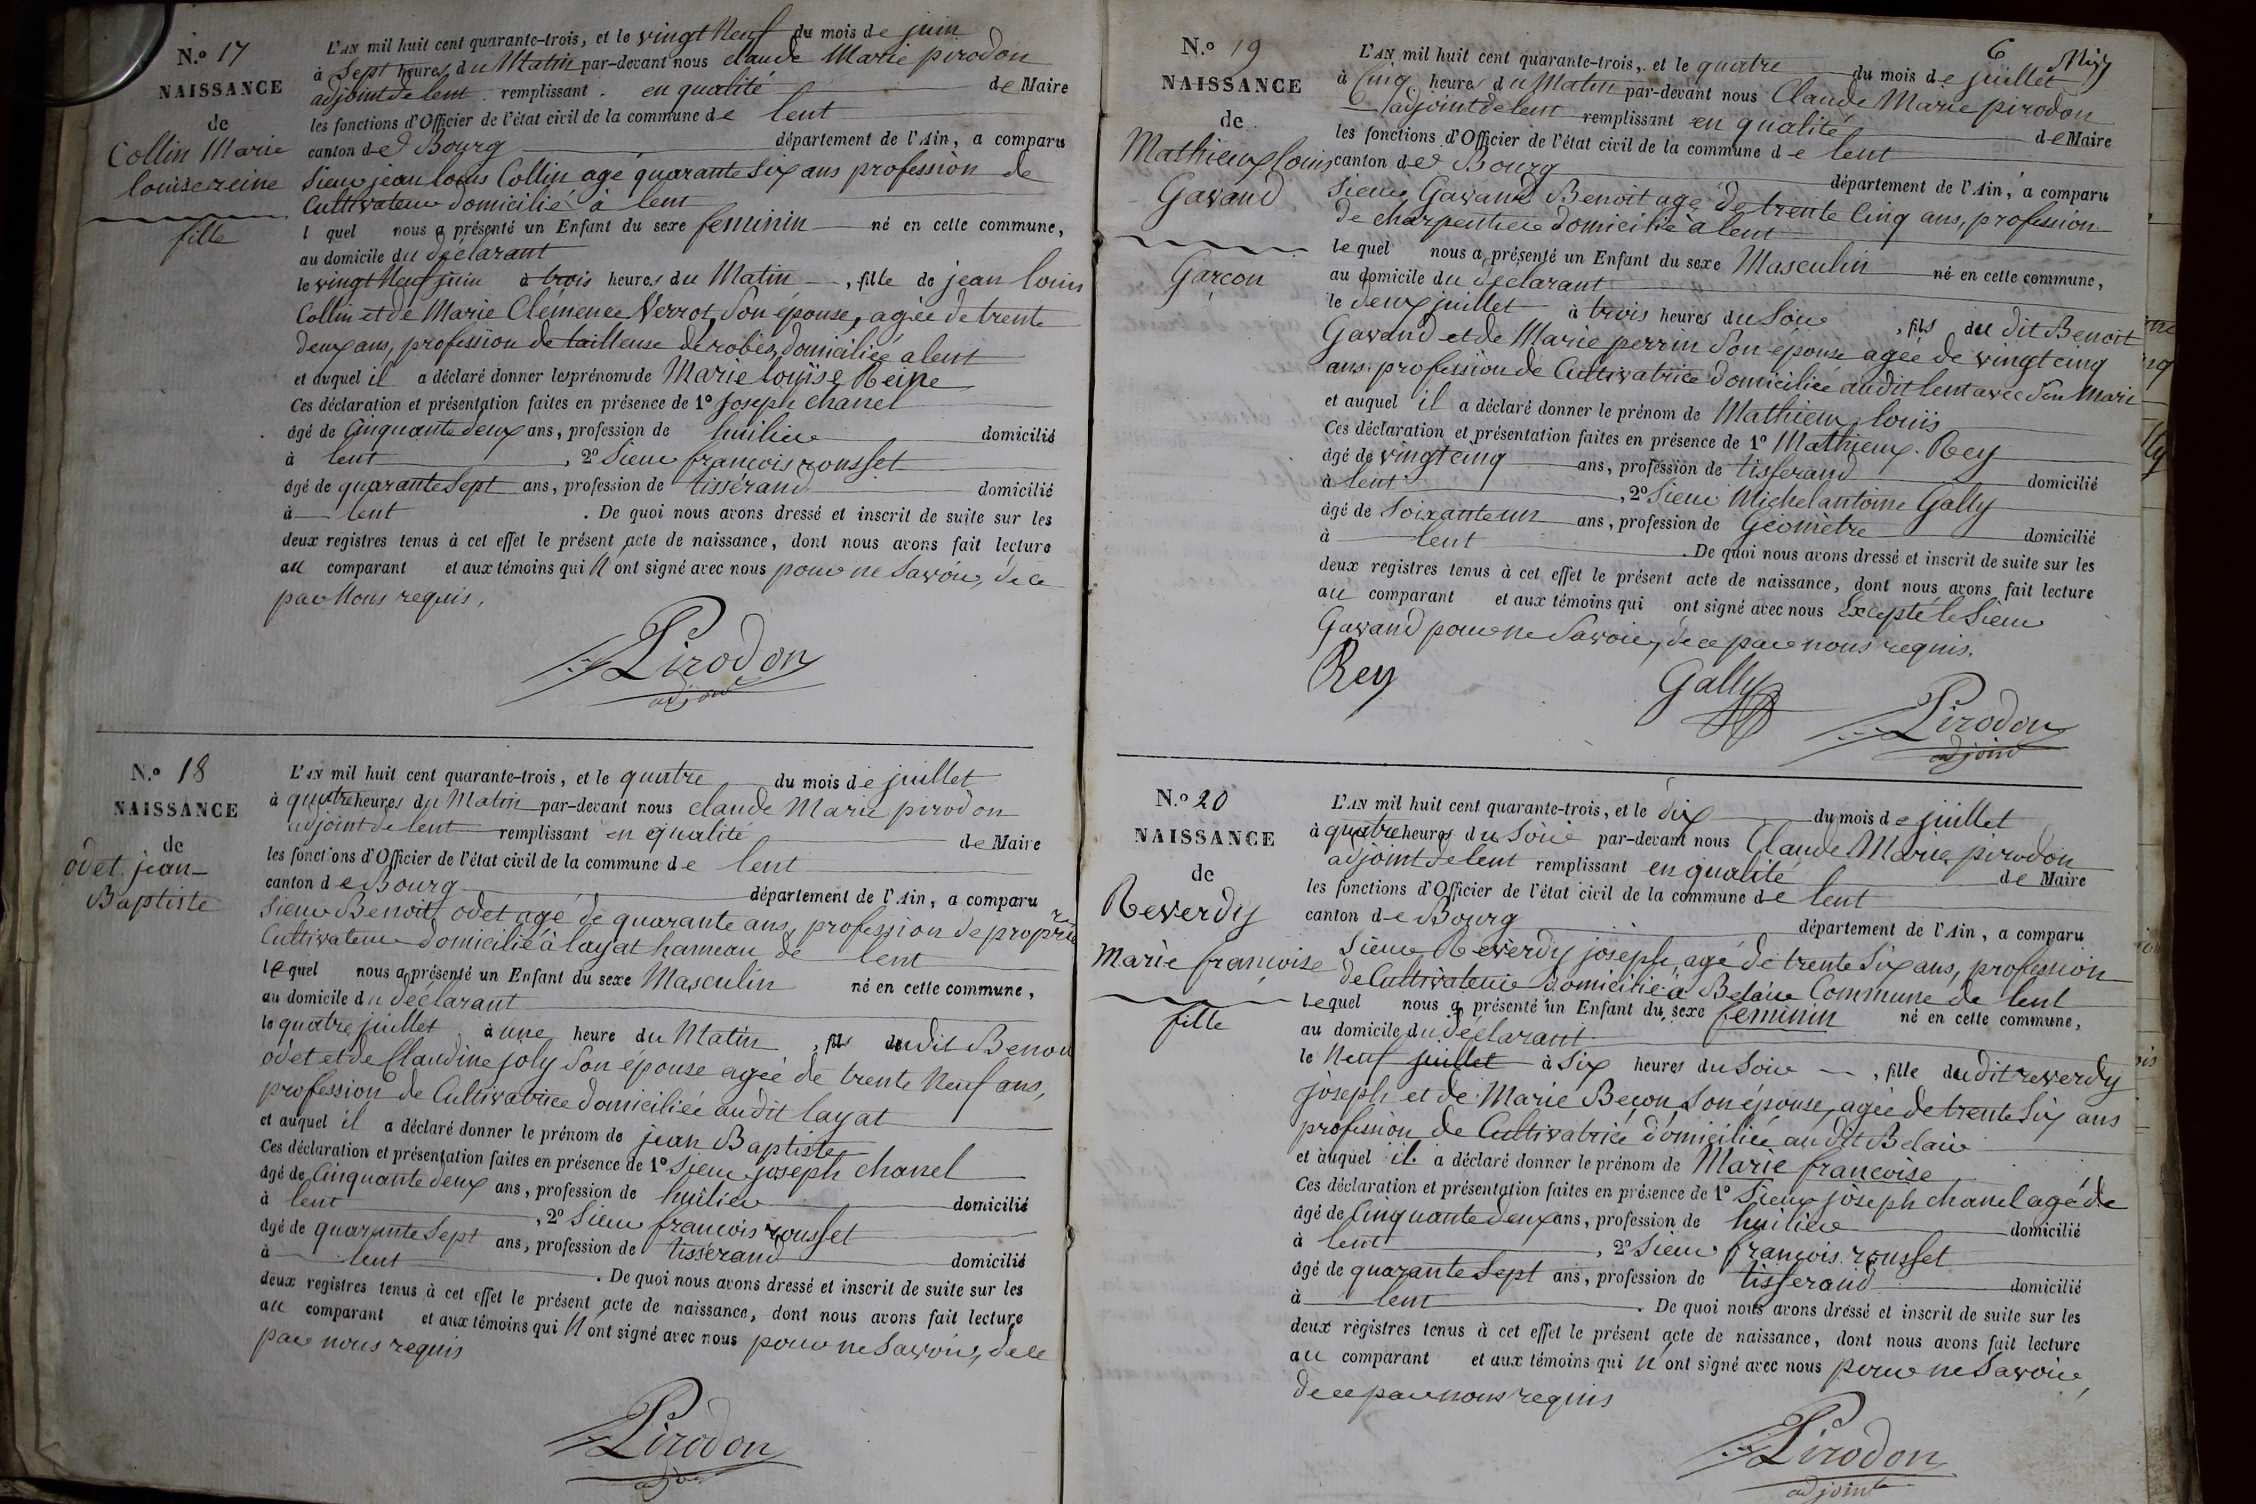 N.º 17
NAISSANCE
de
Collin Marie
louise reine
fille
L'AN mil huit cent quarante-trois, et le vingt Neuf du mois de juin
à Sept heures du Matin par-devant nous claude Marie pirodon
adjoint de lent remplissant en qualité de Maire
les fonctions d'Officier de l'état civil de la commune de lent
canton de Bourg département de l'Ain, a comparu
Sieur jean louis Collin agé quarante Six ans profession de
Cultivateur domicilié à lent
l quel nous a présenté un Enfant du sexe feminin né en cette commune,
au domicile du déclarant
le vingt Neuf juin à trois heures du Matin , fille de jean louis
Collin et de Marie Clémence Verrot, Son épouse, agée de trente
deux ans, profession de tailleuse de robes, domiciliée a lent
et auquel il a déclaré donner les prénoms de Marie louise Reine
Ces déclaration et présentation faites en présence de 1º Joseph chanel
âgé de Cinquante deux ans, profession de huilier domicilié
à lent , 2º Sieur françois rousset
âgé de quarante Sept ans, profession de tisserand domicilié
à lent . De quoi nous avons dressé et inscrit de suite sur les
deux registres tenus à cet effet le présent acte de naissance, dont nous avons fait lecture
au comparant et aux témoins qui N ont signé avec nous pour ne Savoir, de ce
par Nous requis.
Pirodon
adjoint
N.º 18
NAISSANCE
de
odet jean-
Baptiste
L'AN mil huit cent quarante-trois, et le quatre du mois de juillet
à quatre heures du Matin par-devant nous claude Marie pirodon
adjoint de lent remplissant en qualité de Maire
les fonctions d'Officier de l'état civil de la commune de lent
canton de Bourg département de l'Ain, a comparu
Sieur Benoit odet agé de quarante ans, profession de propre
Cultivateur domicilié à layat hameau de lent
lequel nous a présenté un Enfant du sexe Masculin né en cette commune,
au domicile du déclarant
le quatre juillet à une heure du Matin , fils dudit Benoit
odet et de Claudine joly Son épouse agée de trente Neuf ans,
profession de Cultivatrice domiciliée audit layat
et auquel il a déclaré donner le prénom de jean Baptiste
Ces déclaration et présentation faites en présence de 1º Sieur joseph chanel
âgé de Cinquante deux ans, profession de huilier domicilié
à lent , 2º Sieur françois rousset
âgé de quarante Sept ans, profession de tisserand domicilié
à lent . De quoi nous avons dressé et inscrit de suite sur les
deux registres tenus à cet effet le présent acte de naissance, dont nous avons fait lecture
au comparant et aux témoins qui N ont signé avec nous pour ne Savoir, de ce
par nous requis
Pirodon
adjoint
6
N.º 19
NAISSANCE
de
Mathieux louis
Gavand
Garçon
L'AN mil huit cent quarante-trois, et le quatre du mois de juillet
à Cinq heures du Matin par-devant nous Claude Marie pirodon
adjoint de lent remplissant en qualité de Maire
les fonctions d'Officier de l'état civil de la commune de lent
canton de Bourg département de l'Ain, a comparu
Sieur Gavand Benoit agé de trente Cinq ans, profession
de charpentier domicilié à lent
lequel nous a présenté un Enfant du sexe Masculin né en cette commune,
au domicile du déclarant
le deux juillet à trois heures du Soir , fils du dit Benoit
Gavand et de Marie perrin Son épouse agée de vingt cinq
ans profession de Cultivatrice domiciliée audit lent avec Son Mari
et auquel il a déclaré donner le prénom de Mathieux louis
Ces déclaration et présentation faites en présence de 1º Mathieux Rey
âgé de vingt cinq ans, profession de tisserand domicilié
à lent , 2º Sieur Michel antoine Gally
âgé de Soixante un ans, profession de Géomètre domicilié
à lent . De quoi nous avons dressé et inscrit de suite sur les
deux registres tenus à cet effet le présent acte de naissance, dont nous avons fait lecture
au comparant et aux témoins qui ont signé avec nous Excepté le Sieur
Gavand pour ne Savoir, de ce par nous requis.
Rey
Gally
Pirodon
adjoint
N.º 20
NAISSANCE
de
Reverdy
Marie françoise
fille
L'AN mil huit cent quarante-trois, et le dix du mois de juillet
à quatre heures du Soir par-devant nous Claude Marie pirodon
adjoint de lent remplissant en qualité de Maire
les fonctions d'Officier de l'état civil de la commune de lent
canton de Bourg département de l'Ain, a comparu
Sieur Reverdy joseph agé de trente Six ans, profession
de Cultivateur domicilié à Belair Commune de lent
lequel nous a présenté un Enfant du sexe féminin né en cette commune,
au domicile du déclarant
le Neuf juillet à Six heures du Soir , fille dudit reverdy
joseph et de Marie Becon, Son épouse, agée de trente Six ans
profession de Cultivatrice domiciliée audit Belair
et auquel il a déclaré donner le prénom de Marie françoise
Ces déclaration et présentation faites en présence de 1º Sieur joseph chanel agé de
âgé de Cinquante deux ans, profession de huilier domicilié
à lent , 2º Sieur françois rousset
âgé de quarante Sept ans, profession de tisserand domicilié
à lent . De quoi nous avons dressé et inscrit de suite sur les
deux registres tenus à cet effet le présent acte de naissance, dont nous avons fait lecture
au comparant et aux témoins qui N ont signé avec nous pour ne Savoir,
de ce par nous requis
Pirodon
adjoint